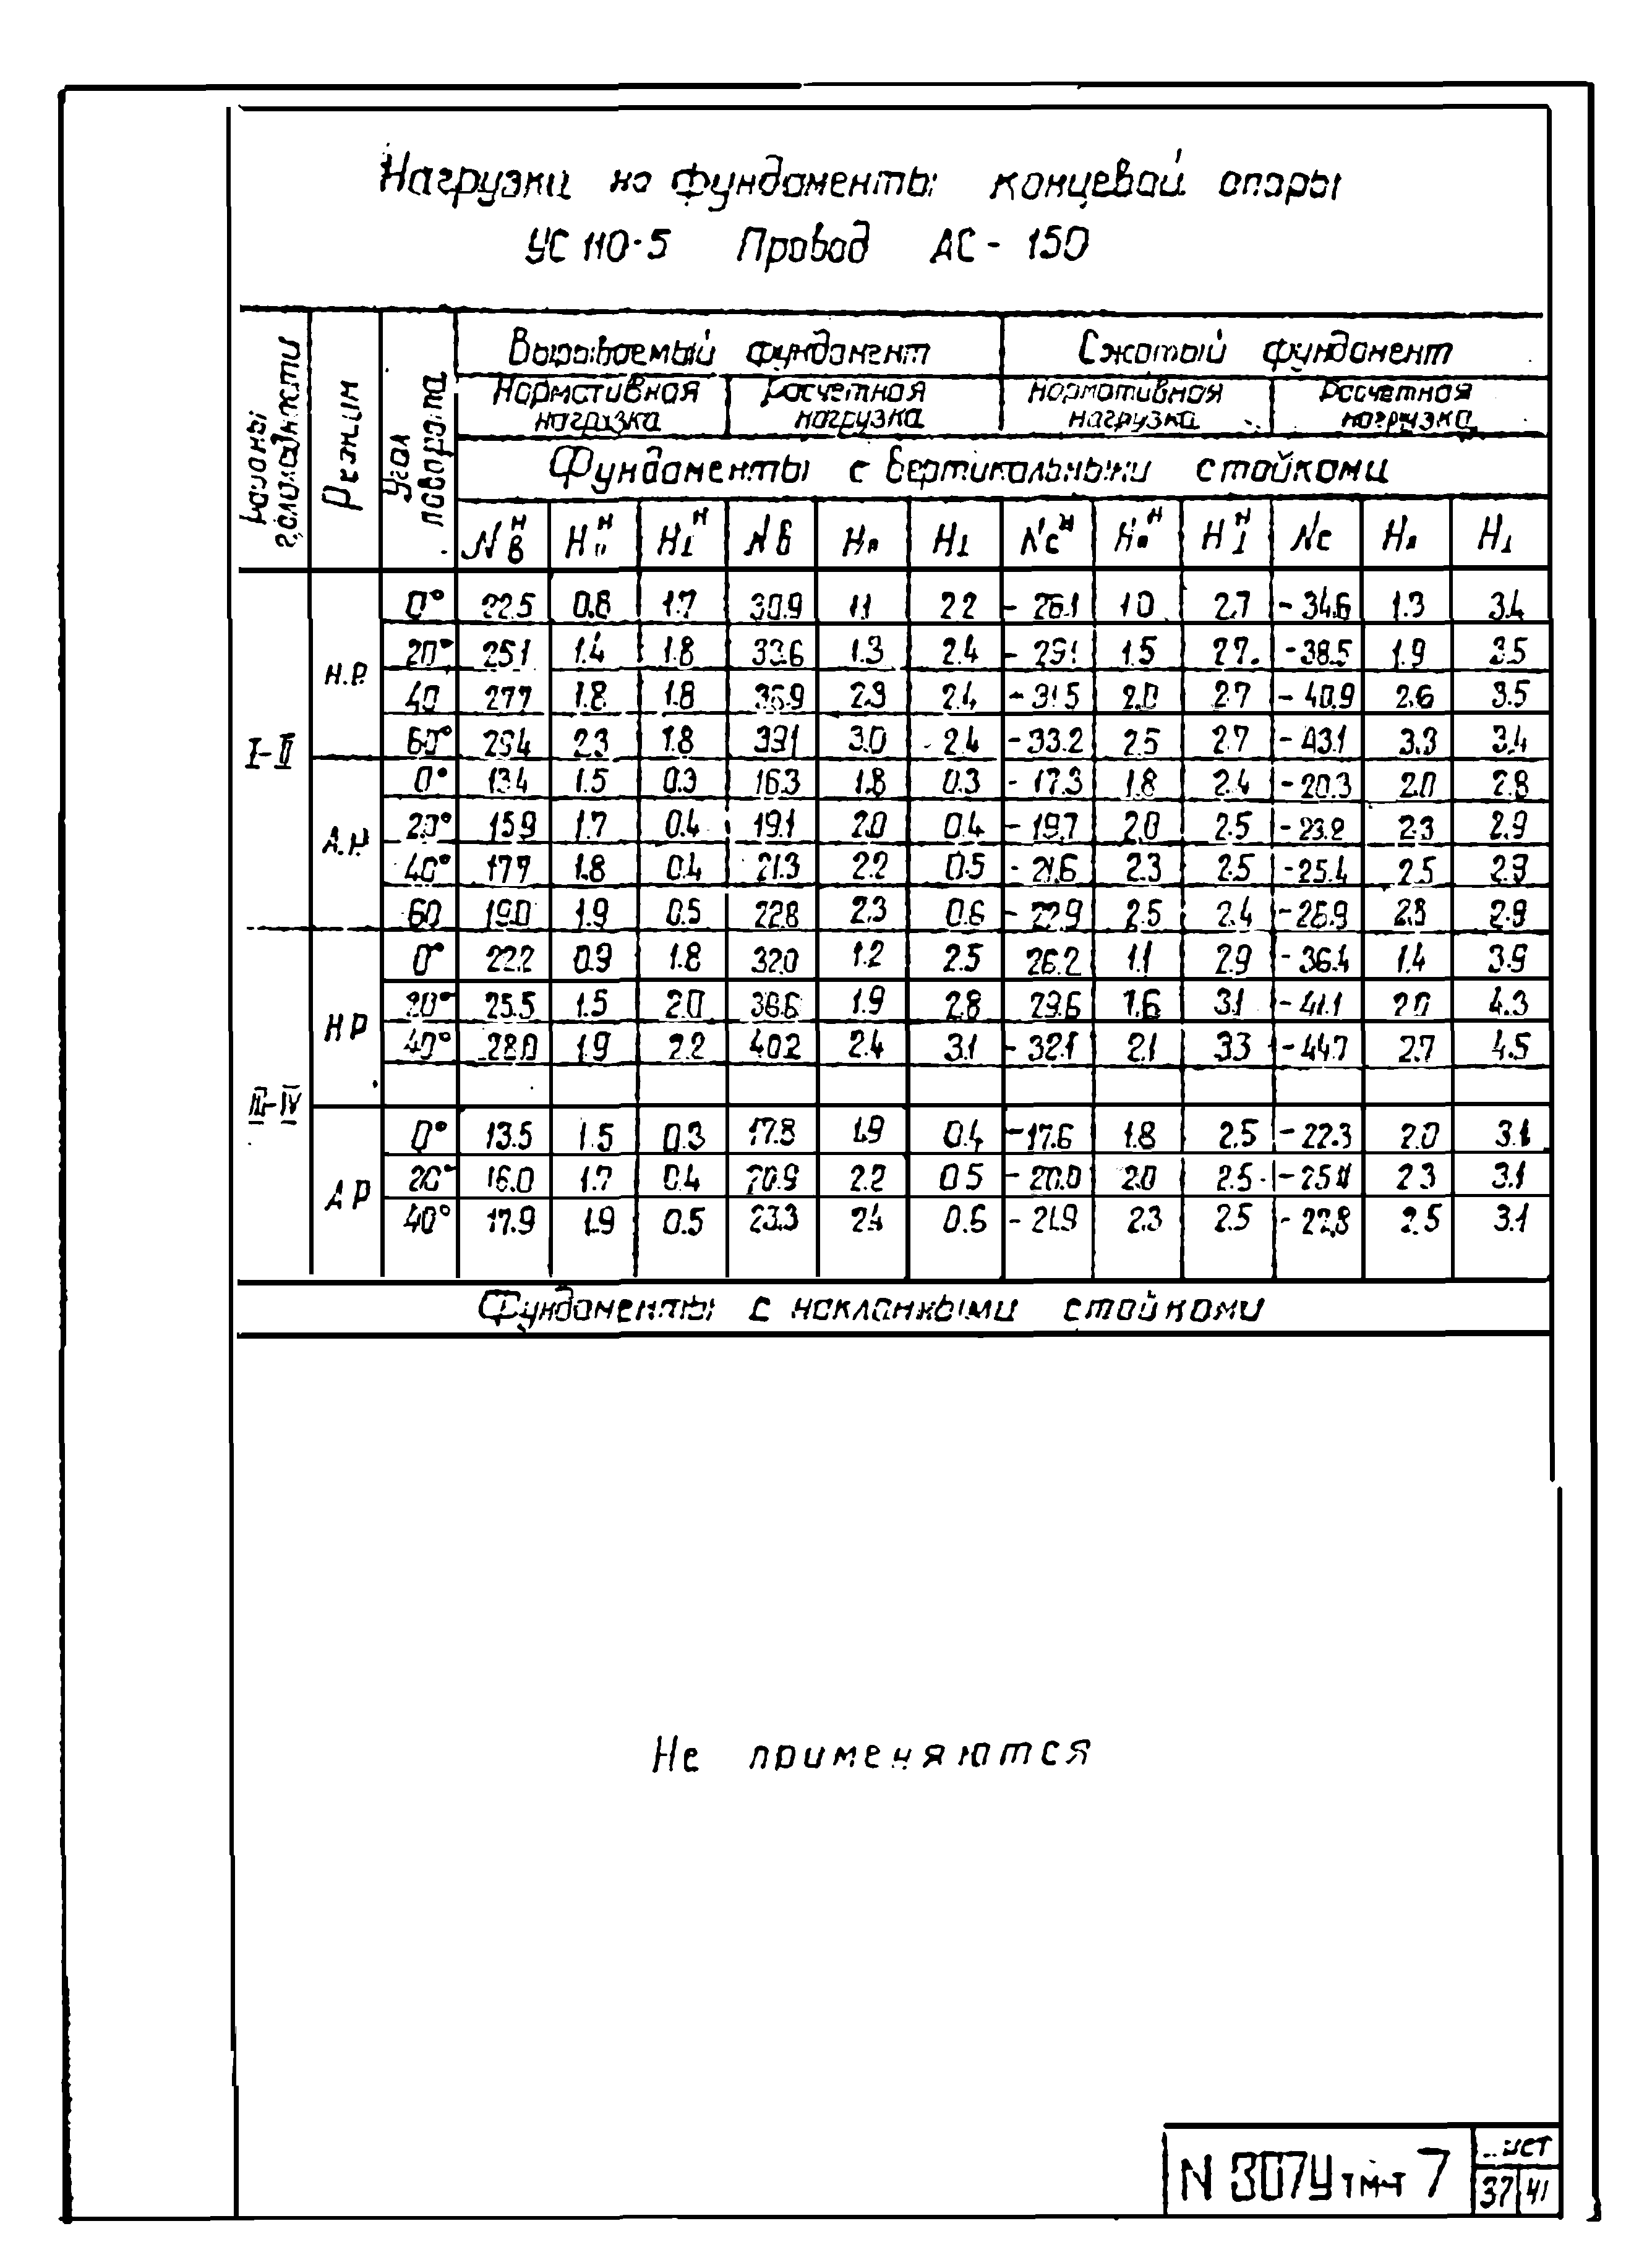 Нагрузки на фундаменты концевой опоры
УС 110-5 Провод АС-150
Районы гололедности Режим Угол поворота Вырываемый фундамент Сжатый фундамент
Нормативная нагрузка Расчетная нагрузка Нормативная нагрузка Расчетная нагрузка
Фундаменты с вертикальными стойками
Nв^н H॥^н H⊥^н Nв H॥ H⊥ Nc^н H॥^н H⊥^н Nc H॥ H⊥
I-II Н.Р. 0° 22.5 0.8 1.7 30.9 1.1 2.2 -26.1 1.0 2.7 -34.6 1.3 3.4
20° 25.1 1.4 1.8 33.6 1.3 2.4 -29.1 1.5 2.7 -38.5 1.9 3.5
40 27.7 1.8 1.8 36.9 2.3 2.4 -31.5 2.0 2.7 -40.9 2.6 3.5
60° 29.4 2.3 1.8 39.1 3.0 2.4 -33.2 2.5 2.7 -43.1 3.3 3.4
А.Р 0° 13.4 1.5 0.3 16.3 1.8 0.3 -17.3 1.8 2.4 -20.3 2.0 2.8
20° 15.9 1.7 0.4 19.1 2.0 0.4 -19.7 2.0 2.5 -23.2 2.3 2.9
40° 17.7 1.8 0.4 21.3 2.2 0.5 -21.6 2.3 2.5 -25.4 2.5 2.9
60 19.0 1.9 0.5 22.8 2.3 0.6 -22.9 2.5 2.4 -26.9 2.8 2.9
III-IV НР 0° 22.2 0.9 1.8 32.0 1.2 2.5 26.2 1.1 2.9 -36.4 1.4 3.9
20° 25.5 1.5 2.0 36.6 1.9 2.8 29.6 1.6 3.1 -41.1 2.0 4.3
40° 28.0 1.9 2.2 40.2 2.4 3.1 -32.1 2.1 3.3 -44.7 2.7 4.5
АР 0° 13.5 1.5 0.3 17.8 1.9 0.4 -17.6 1.8 2.5 -22.3 2.0 3.1
20° 16.0 1.7 0.4 20.9 2.2 0.5 -20.0 2.0 2.5 2.3 3.1
40° 17.9 1.9 0.5 23.3 2.4 0.6 -21.9 2.3 2.5 2.5 3.1
Фундаменты с наклонными стойками
Не применяются
N 3074тм-т7 лист
37 41